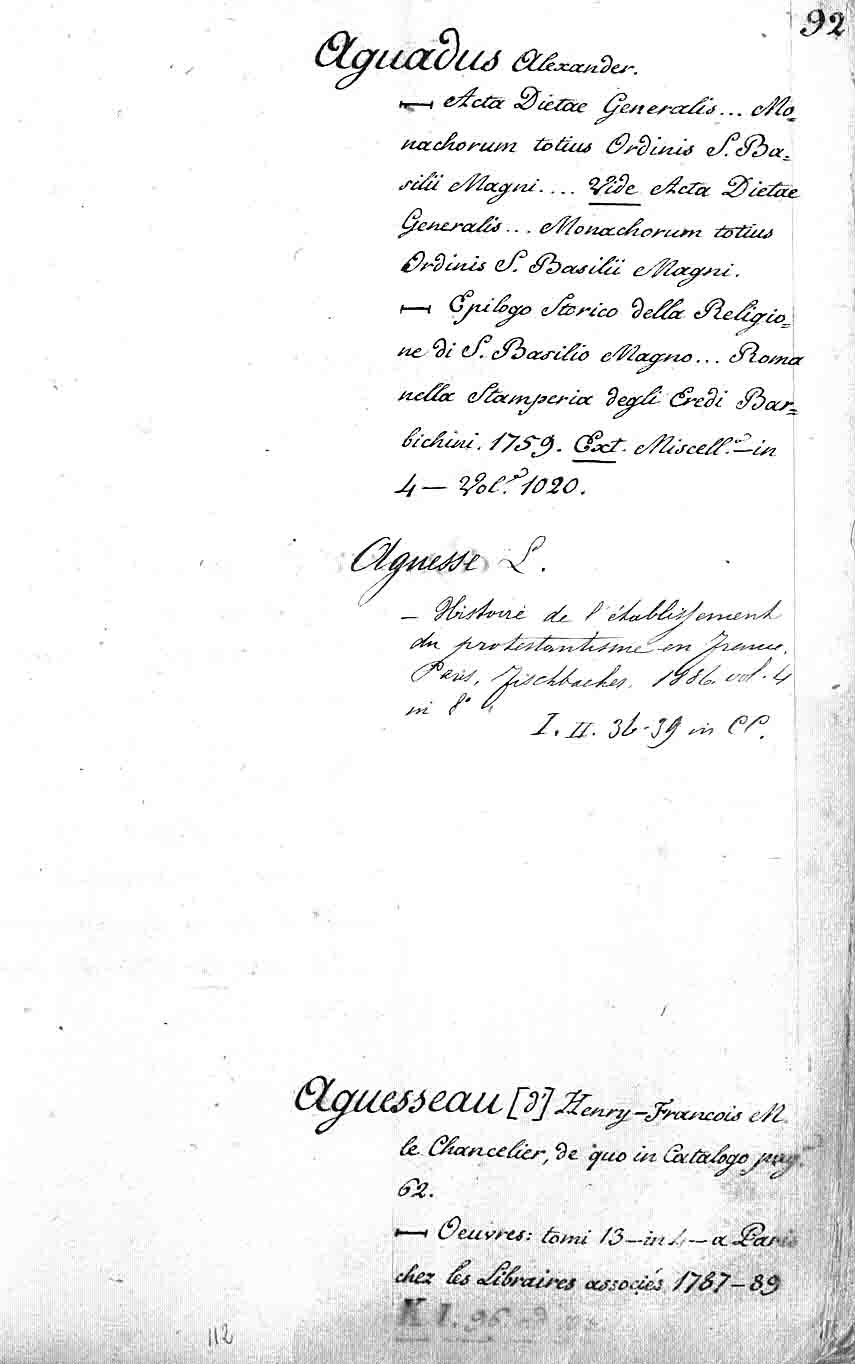 92
Aguadus Alexander.
— Acta Dietae Generalis... Mo=
nachorum totius Ordinis S. Ba=
silii Magni.... Vide Acta Dietae
Generalis... Monachorum totius
Ordinis S. Basilii Magni.
— Epilogo Storico della Religio=
ne di S. Basilio Magno... Roma
nella Stamperia degli Eredi Bar=
bichini. 1759. Ext. Miscell.a—in
4— Vol.e 1020.
Aguesse L.
— Histoire de l'établissement
du protestantisme en France.
Paris, Fischbacher. 1886 vol. 4
in 8°
I. II. 36-39 in CC.
Aguesseau [d'] Henry-Francois M.
le Chancelier, de quo in Catalogo pag.
62.
— Oeuvres: tomi 13—in 4—a Paris
chez les Libraires associés 1787-89
K I. 96
112